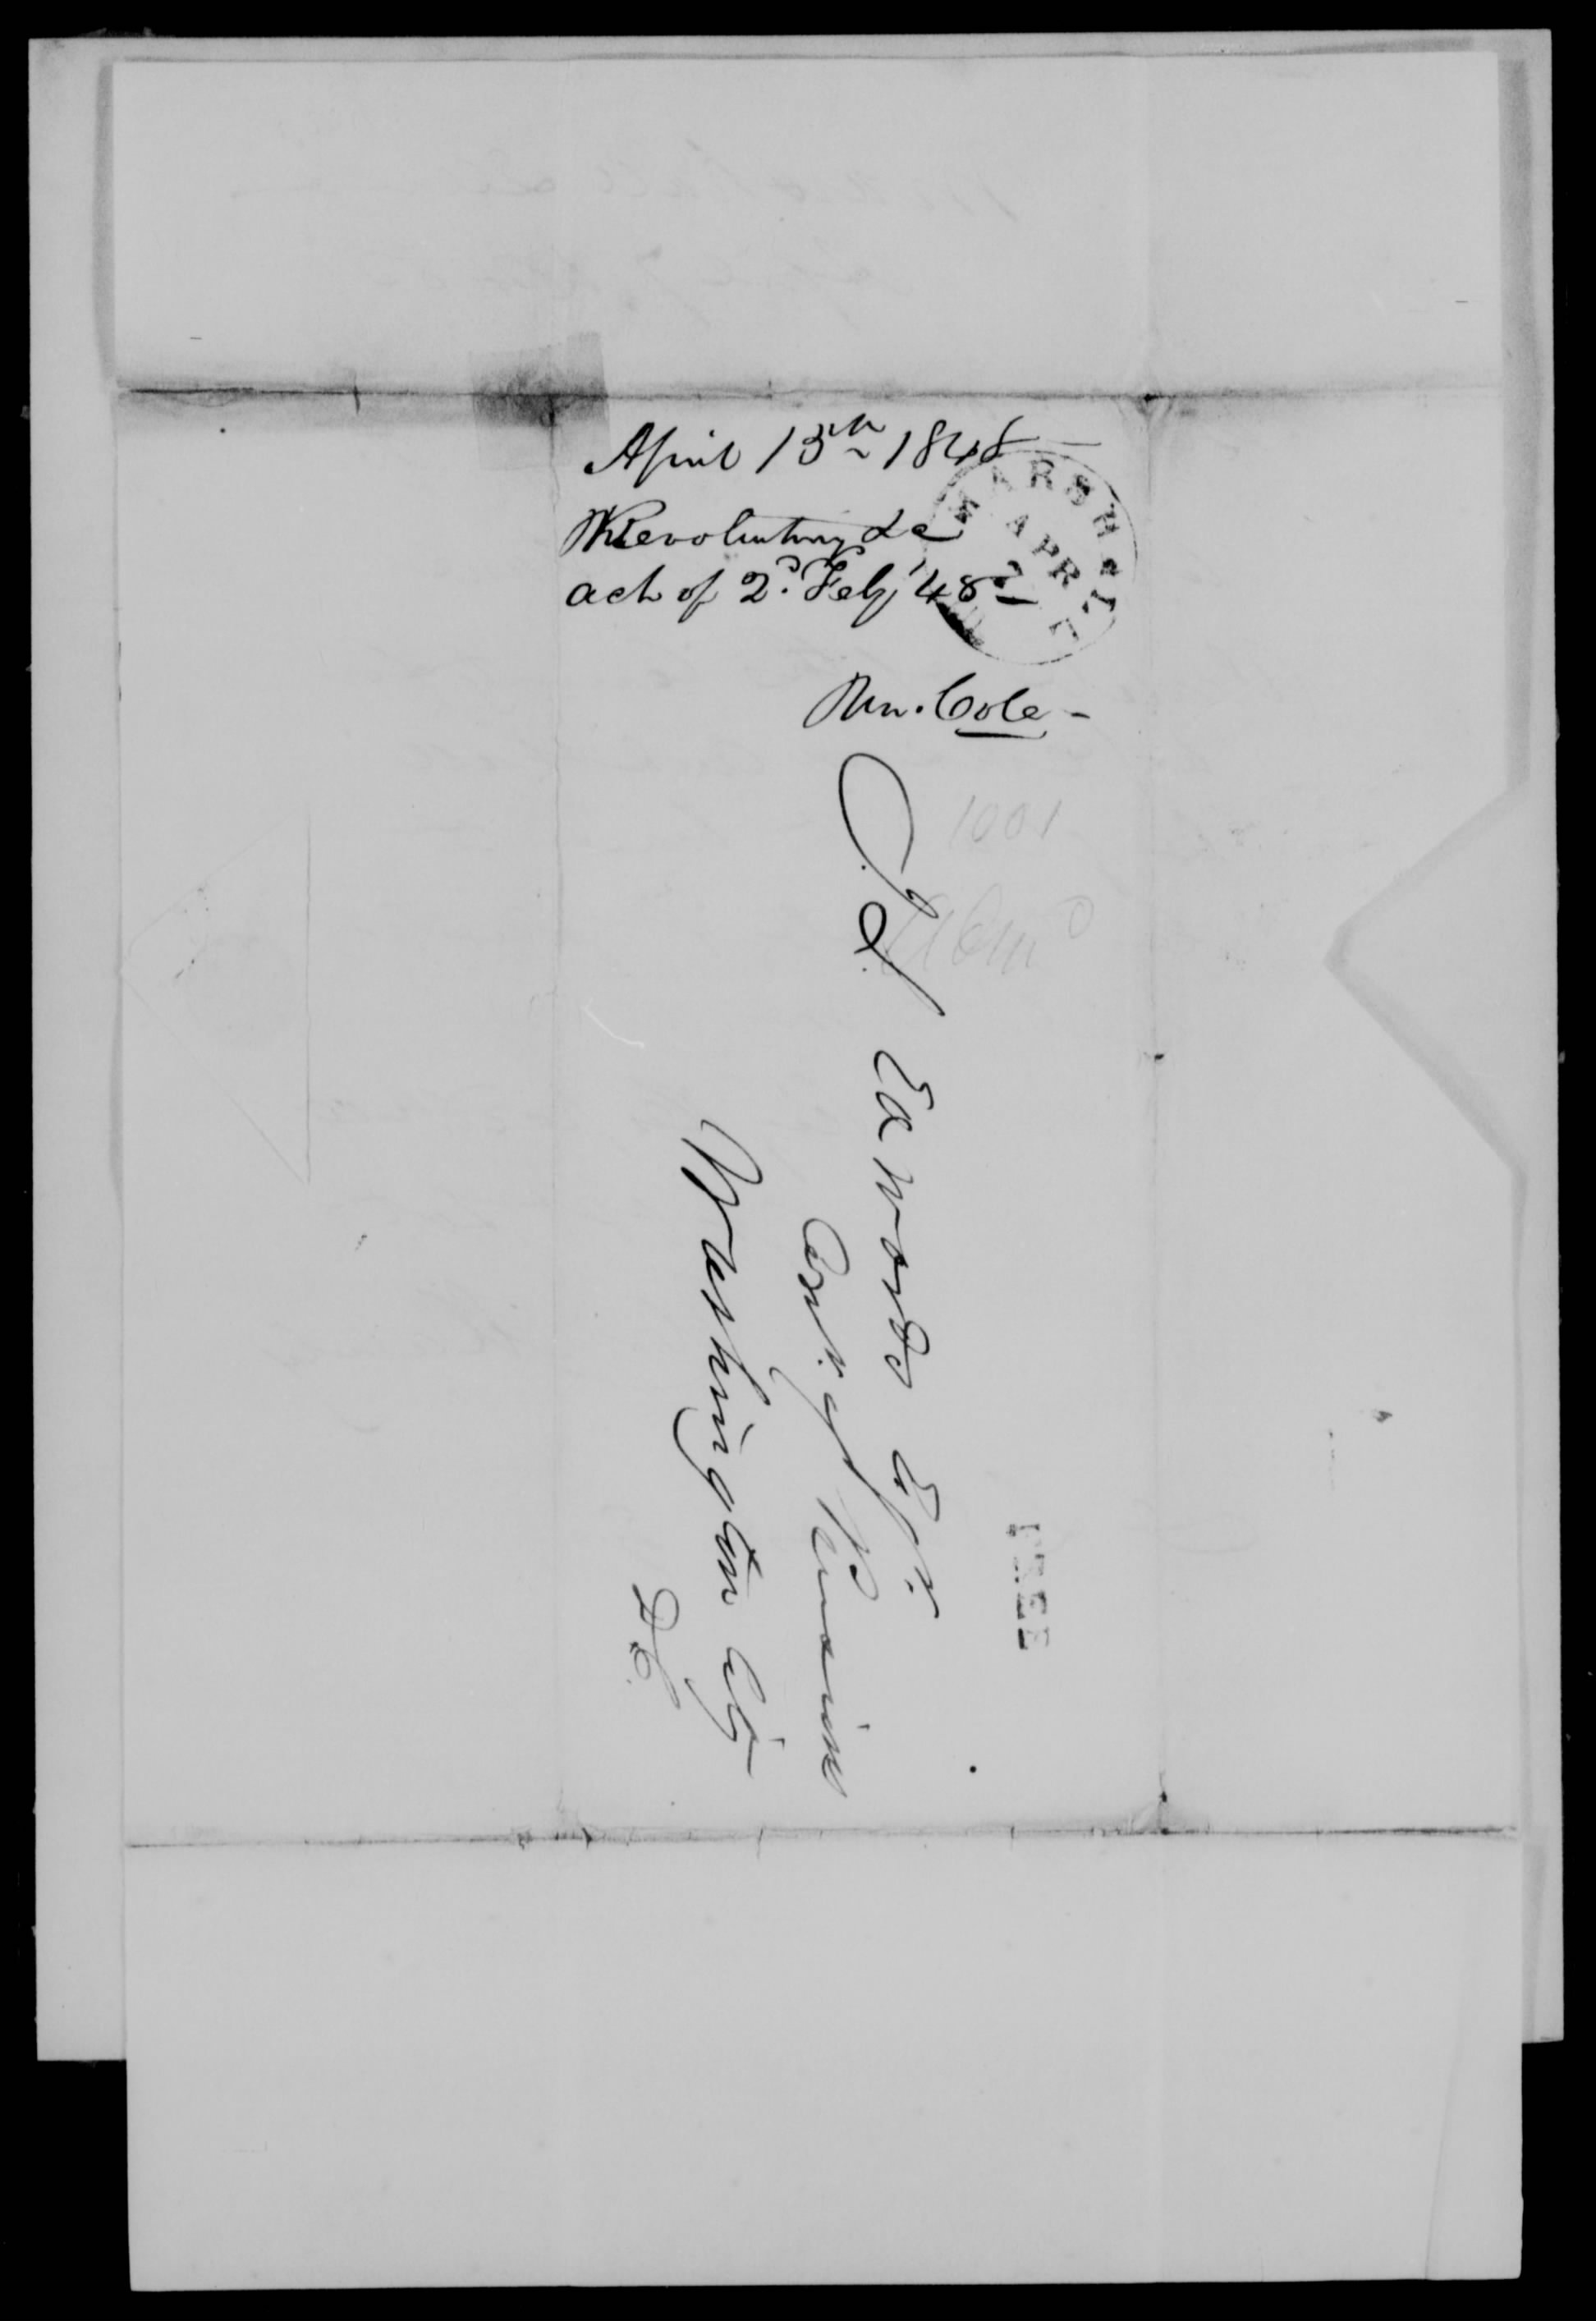 April 15th 1848
Revolutiony &c
act of 2d. Feby '48
Mr. Cole -
MARSHALL
APR
7
1001
J L Edwards Esqr.
Comr. of Pensions
Washington City
D.C.
FREE